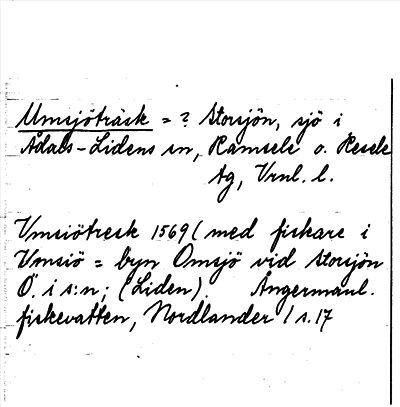 Umsjöträsk = ? Storsjön, sjö i
Ådals-Lidens sn, Ramsele o. Resele
tg, Vrnl. l.
Vmsiötresk 1569 (med fiskare i
Vmsiö = byn Omsjö vid Storsjön
Ö. i s:n; (Liden). Ångermanl.
fiskevatten, Nordlander 1 s. 17